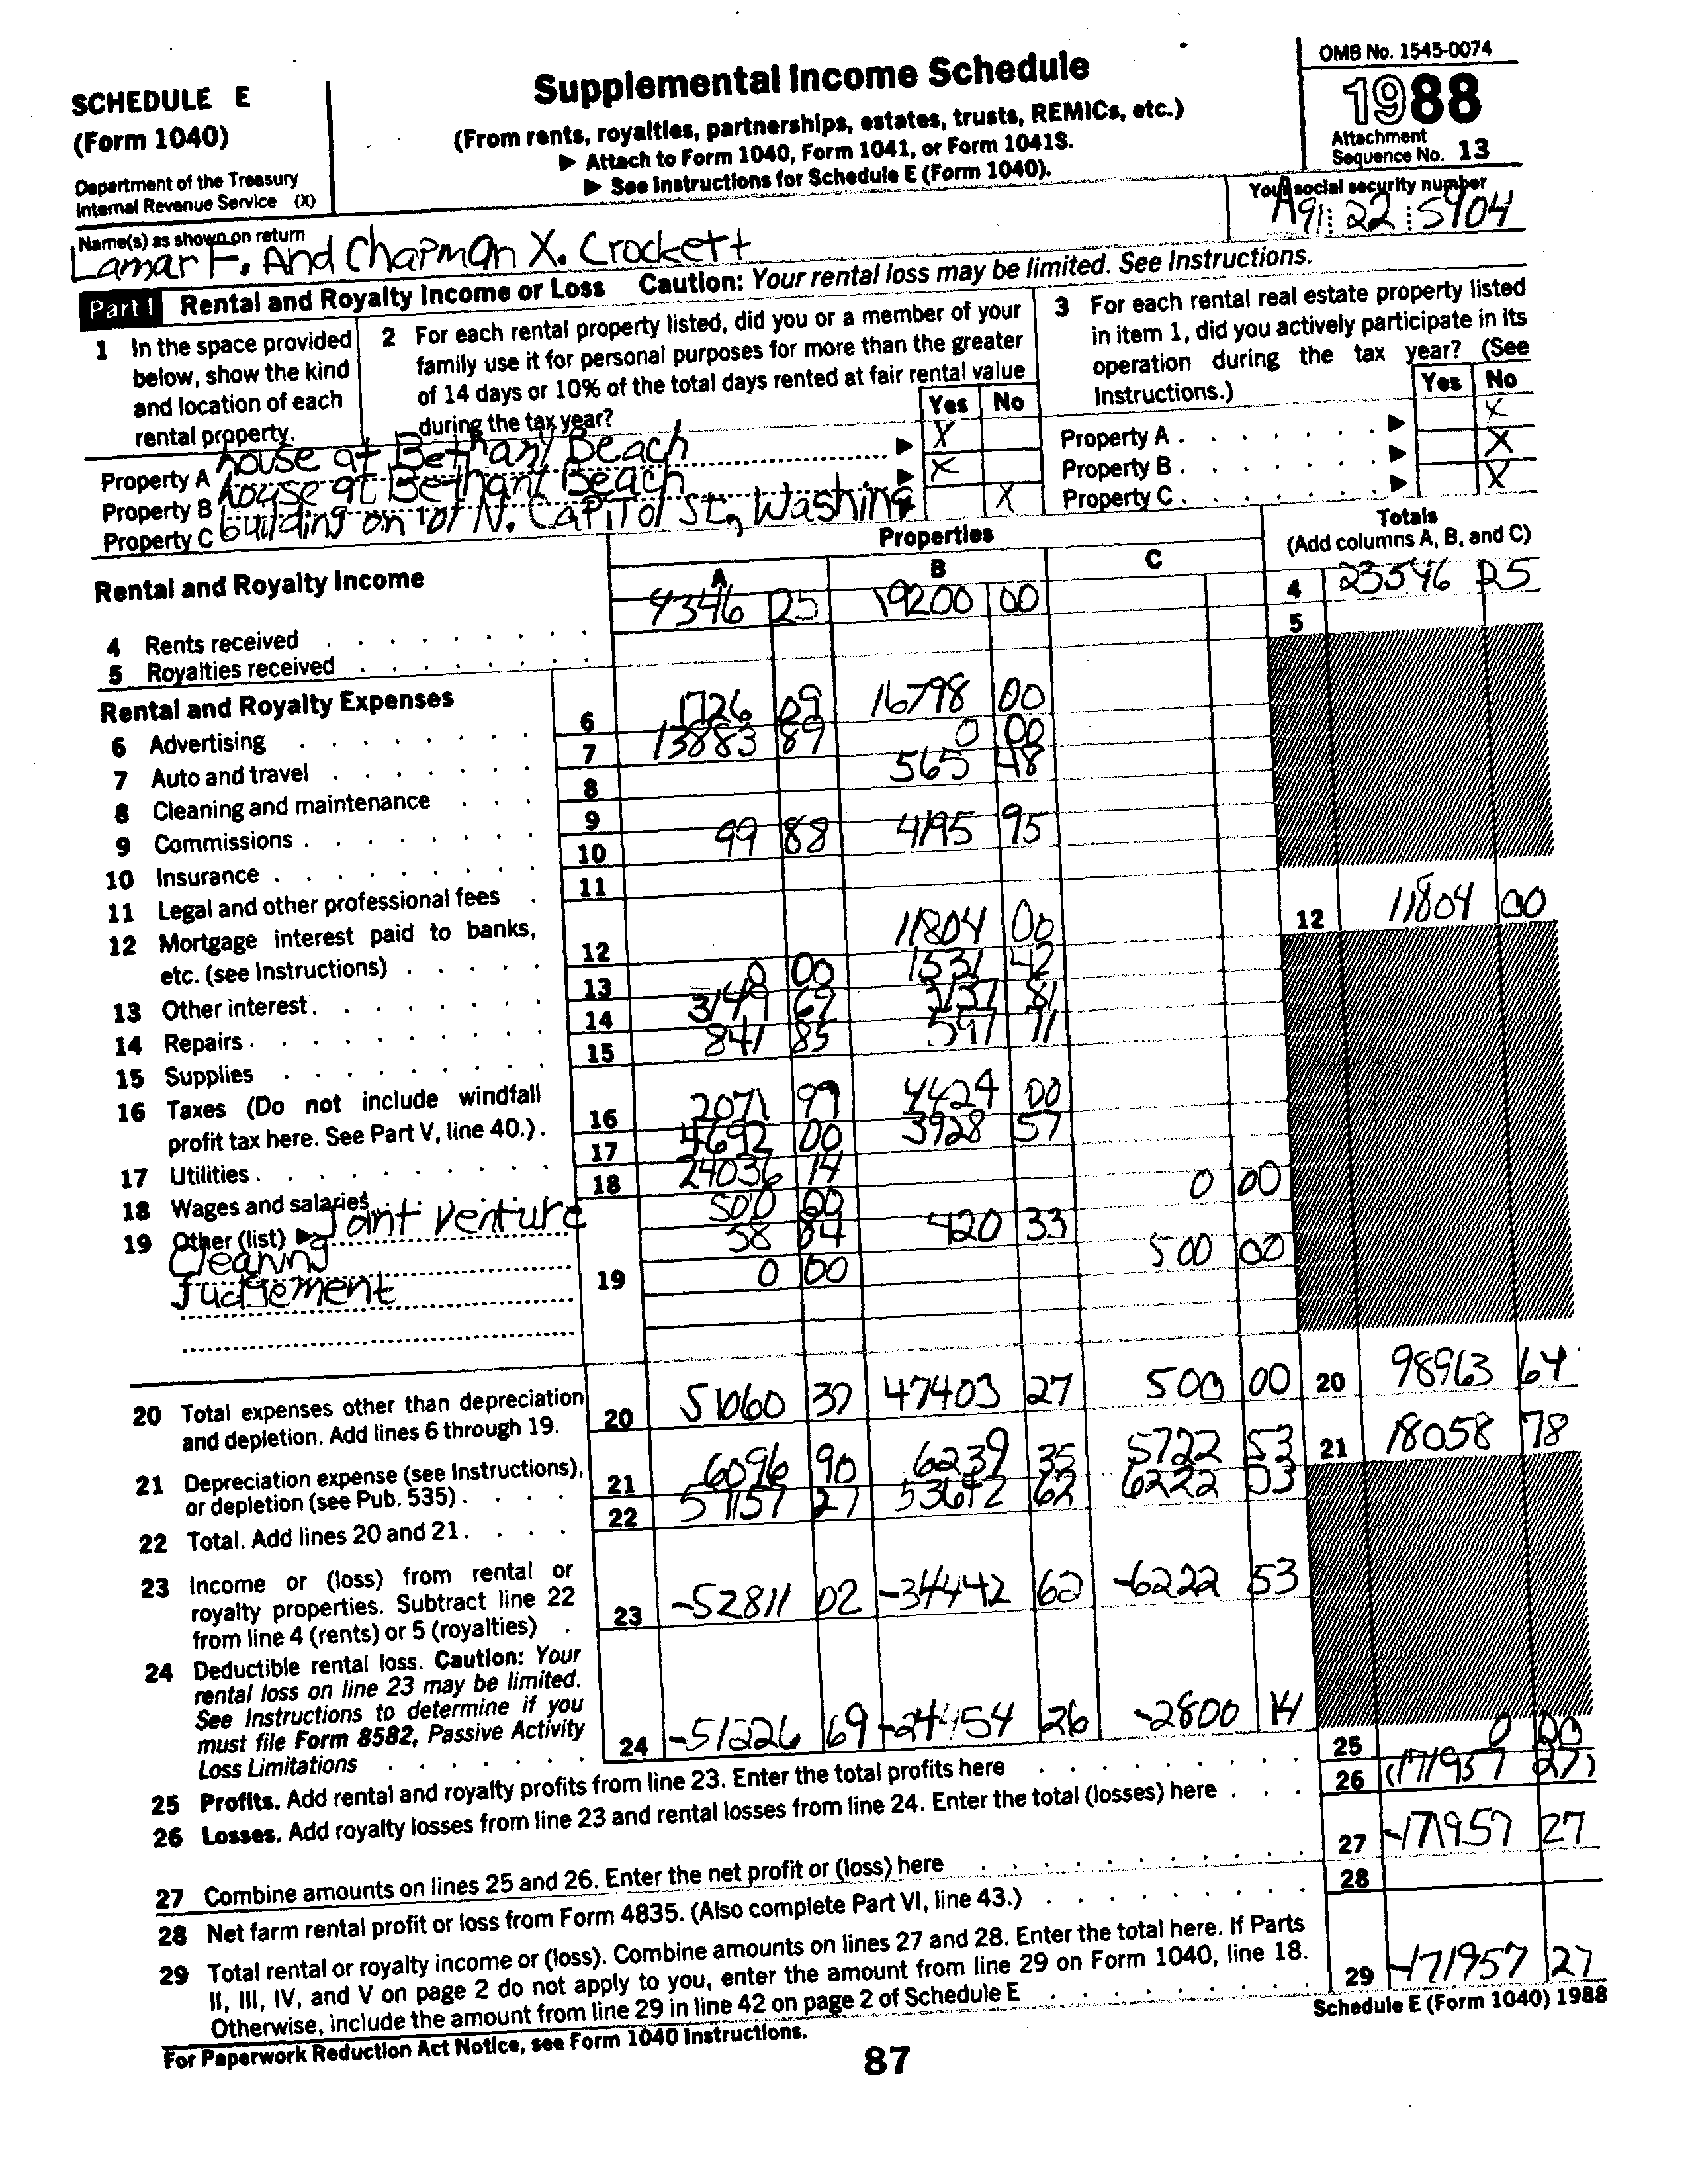 SCHEDULE E
(Form 1040)
Department of the Treasury
Internal Revenue Service (X)
Supplemental Income Schedule
(From rents, royalties, partnerships, estates, trusts, REMICs, etc.)
▶ Attach to Form 1040, Form 1041, or Form 1041S.
▶ See Instructions for Schedule E (Form 1040).
OMB No. 1545-0074
1988
Attachment
Sequence No. 13
Name(s) as shown on return
Lamar F. And Chapman X. Crockett
Your social security number
A91 22 5904
Part I Rental and Royalty Income or Loss Caution: Your rental loss may be limited. See Instructions.
1 In the space provided
below, show the kind
and location of each
rental property.
2 For each rental property listed, did you or a member of your
family use it for personal purposes for more than the greater
of 14 days or 10% of the total days rented at fair rental value
during the tax year?
Yes No
3 For each rental real estate property listed
in item 1, did you actively participate in its
operation during the tax year? (See
Instructions.)
Yes No
Property A house at Bethany Beach X
Property B house at Bethany Beach X
Property C building on lot N. Capitol St., Washing X
Property A . X
Property B . X
Property C . X
Rental and Royalty Income
Properties
A B C
Totals
(Add columns A, B, and C)
4 Rents received 4346 25 19200 00 4 23546 25
5 Royalties received 5
Rental and Royalty Expenses
6 Advertising 6 1726 09 16798 00
7 Auto and travel 7 13883 89 0 00
8 Cleaning and maintenance 8 565 48
9 Commissions 9
10 Insurance 10 99 88 4195 95
11 Legal and other professional fees 11
12 Mortgage interest paid to banks,
etc. (see Instructions) 12 11804 00 12 11804 00
13 Other interest 13 0 00 1531 42
14 Repairs 14 3149 69 3137 81
15 Supplies 15 841 85 597 71
16 Taxes (Do not include windfall
profit tax here. See Part V, line 40.) 16 2071 99 4424 00
17 Utilities 17 4692 00 3928 57
18 Wages and salaries 18 24036 14
19 Other (list) ▶ Joint venture 500 00 0 00
Cleaning 58 84 420 33
Judgement 19 0 00 500 00
20 Total expenses other than depreciation
and depletion. Add lines 6 through 19. 20 51060 37 47403 27 500 00 20 98963 64
21 Depreciation expense (see Instructions),
or depletion (see Pub. 535) 21 6096 90 6239 35 5722 53 21 18058 78
22 Total. Add lines 20 and 21 22 57157 27 53642 62 6222 53
23 Income or (loss) from rental or
royalty properties. Subtract line 22
from line 4 (rents) or 5 (royalties) 23 -52811 02 -34442 62 -6222 53
24 Deductible rental loss. Caution: Your
rental loss on line 23 may be limited.
See Instructions to determine if you
must file Form 8582, Passive Activity
Loss Limitations 24 -51226 69 -24454 26 -2800 14
25 Profits. Add rental and royalty profits from line 23. Enter the total profits here 25 0 00
26 Losses. Add royalty losses from line 23 and rental losses from line 24. Enter the total (losses) here 26 (171957 27)
27 Combine amounts on lines 25 and 26. Enter the net profit or (loss) here 27 -171957 27
28 Net farm rental profit or loss from Form 4835. (Also complete Part VI, line 43.) 28
29 Total rental or royalty income or (loss). Combine amounts on lines 27 and 28. Enter the total here. If Parts
II, III, IV, and V on page 2 do not apply to you, enter the amount from line 29 on Form 1040, line 18.
Otherwise, include the amount from line 29 in line 42 on page 2 of Schedule E 29 -171957 27
For Paperwork Reduction Act Notice, see Form 1040 Instructions.
Schedule E (Form 1040) 1988
87